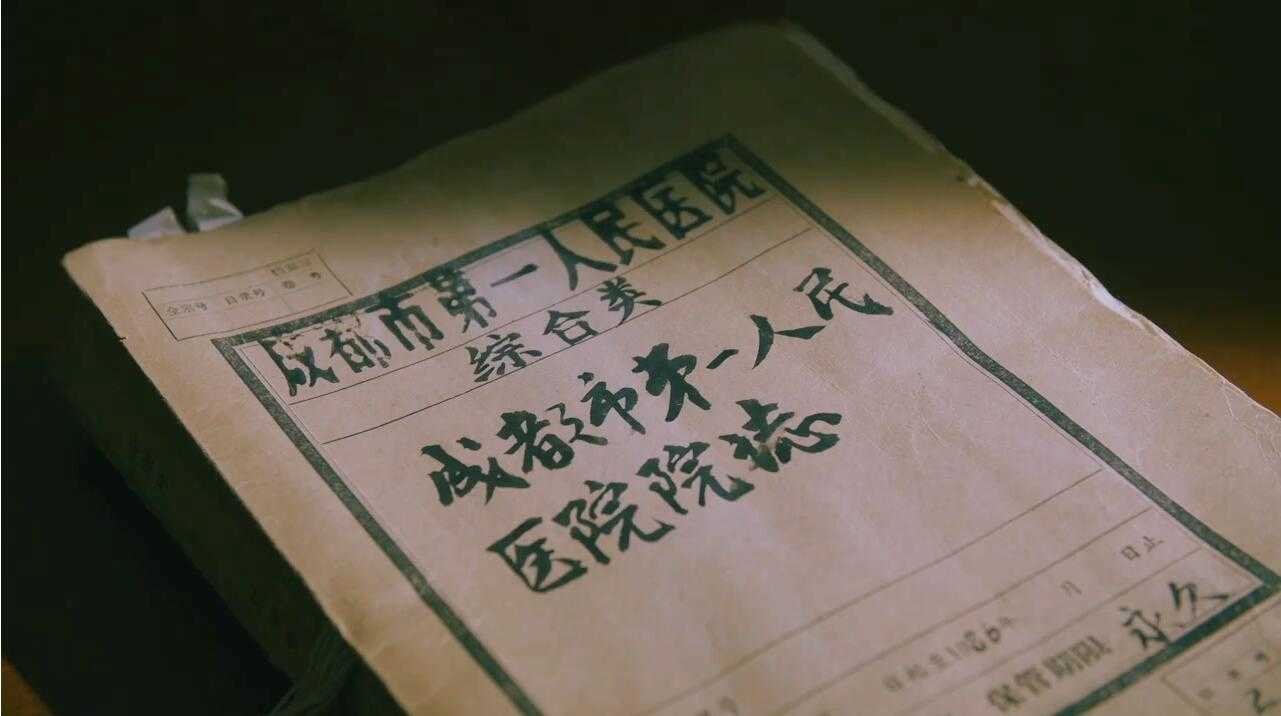 档案馆
全宗号 目录号 卷号
成都市第一人民医院
综合类
成都市第一人民
医院院誌
日起至1986年 月 日止
保管期限 永久